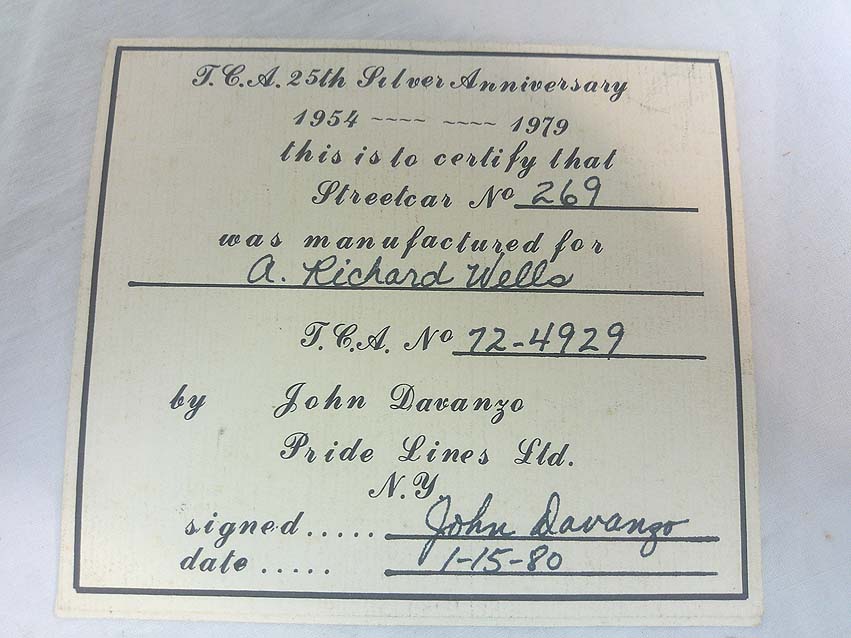 T.C.A. 25th Silver Anniversary
1954 ~~~~ ~~~~ 1979
this is to certify that
Streetcar No 269
was manufactured for
A. Richard Wells
T.C.A. No 72-4929
by John Davanzo
Pride Lines Ltd.
N.Y.
signed..... John Davanzo
date ..... 1-15-80